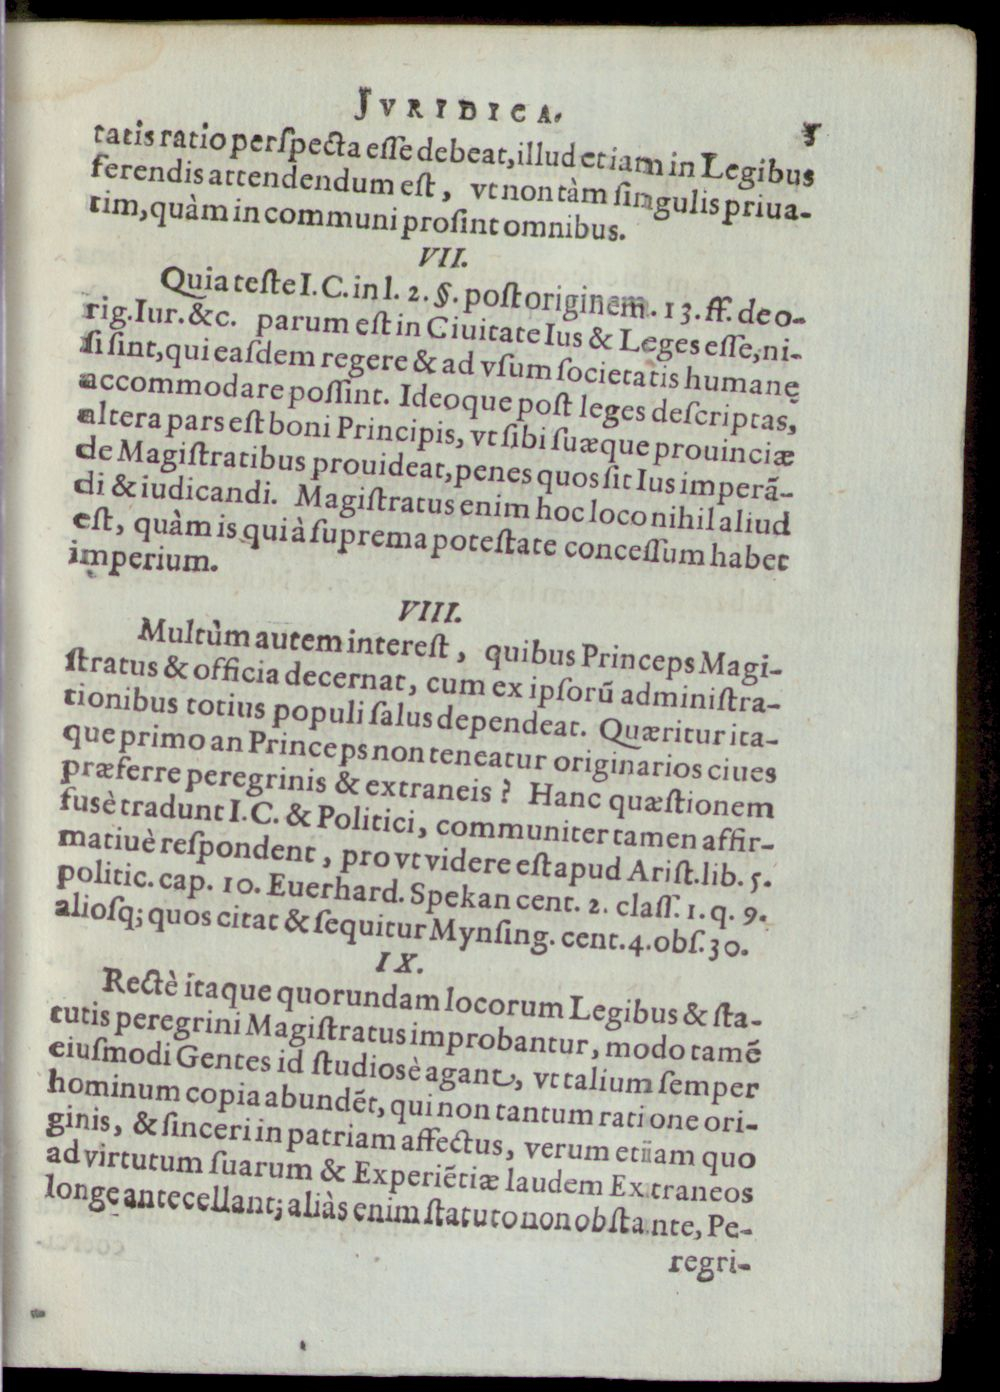 JVRIDICA.
tatis ratio perſpecta eſſe debeat, illud etiam in Legibus
ferendis attendendum eſt, vt non tàm ſingulis priua-
tim, quàm in communi proſint omnibus.
VII.
Quia teſte I.C. in l. 2. §. poſt originem. 13. ff. de o-
rig. Iur. &c. parum eſt in Ciuitate Ius & Leges eſſe, ni-
ſi ſint, qui eaſdem regere & ad vſum ſocietatis humanę
accommodare poſſint. Ideoque poſt leges deſcriptas,
altera pars eſt boni Principis, vt ſibi ſuæque prouinciæ
de Magiſtratibus prouideat, penes quos ſit Ius imperā-
di & iudicandi. Magiſtratus enim hoc loco nihil aliud
eſt, quàm is qui à ſuprema poteſtate conceſſum habet
imperium.
VIII.
Multùm autem intereſt, quibus Princeps Magi-
ſtratus & officia decernat, cum ex ipſorū adminiſtra-
tionibus totius populi ſalus dependeat. Quæritur ita-
que primo an Princeps non teneatur originarios ciues
præferre peregrinis & extraneis? Hanc quæſtionem
fusè tradunt I.C. & Politici, communiter tamen affir-
matiuè reſpondent, pro vt videre eſt apud Ariſt. lib. 5.
politic. cap. 10. Euerhard. Spekan cent. 2. claſſ. 1. q. 9.
alioſq; quos citat & ſequitur Mynſing. cent. 4. obſ. 30.
IX.
Rectè itaque quorundam locorum Legibus & ſta-
tutis peregrini Magiſtratus improbantur, modo tamē
eiuſmodi Gentes id ſtudiosè agant, vt talium ſemper
hominum copia abundēt, qui non tantum ratione ori-
ginis, & ſinceri in patriam affectus, verum etiam quo
ad virtutum ſuarum & Experiētiæ laudem Extraneos
longe antecellant; aliàs enim ſtatuto non obſtante, Pe-
regri-